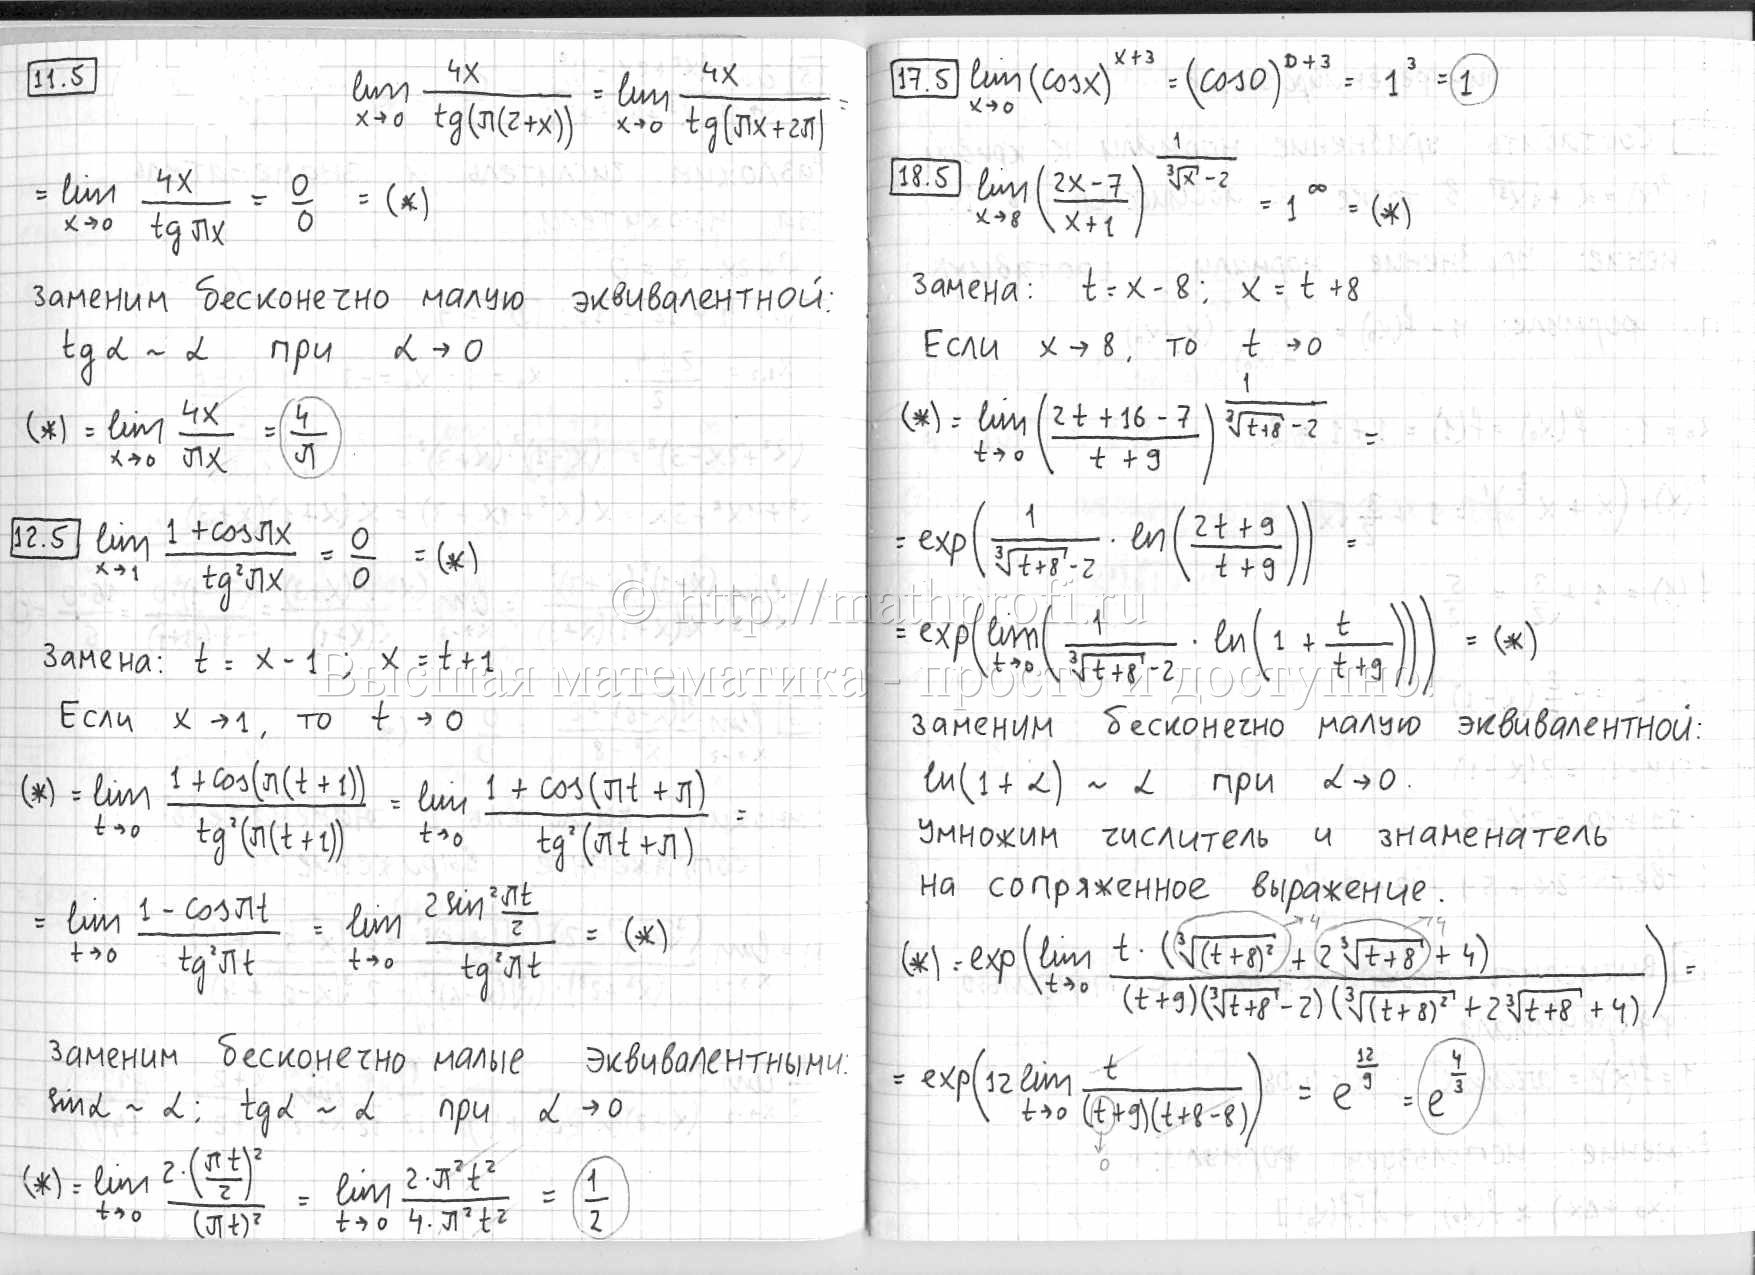 11.5 lim x→0 4x / tg(π(2+x)) = lim x→0 4x / tg(πx+2π) =
= lim x→0 4x / tg πx = 0/0 = (*)
Заменим бесконечно малую эквивалентной:
tg α ~ α при α → 0
(*) = lim x→0 4x / πx = 4/π
12.5 lim x→1 (1 + cos πx) / tg²πx = 0/0 = (*)
Замена: t = x - 1; x = t + 1
Если x → 1, то t → 0
(*) = lim t→0 (1 + cos(π(t+1))) / tg²(π(t+1)) = lim t→0 (1 + cos(πt + π)) / tg²(πt + π) =
= lim t→0 (1 - cos πt) / tg²πt = lim t→0 2sin²(πt/2) / tg²πt = (*)
Заменим бесконечно малые эквивалентными:
sin α ~ α; tg α ~ α при α → 0
(*) = lim t→0 2·(πt/2)² / (πt)² = lim t→0 2·π²t² / 4·π²t² = 1/2
17.5 lim x→0 (cos x)^(x+3) = (cos 0)^(0+3) = 1³ = 1
18.5 lim x→8 ((2x-7)/(x+1))^(1/(∛x - 2)) = 1^∞ = (*)
Замена: t = x - 8; x = t + 8
Если x → 8, то t → 0
(*) = lim t→0 ((2t + 16 - 7)/(t + 9))^(1/(∛(t+8) - 2)) =
= exp(1/(∛(t+8) - 2) · ln((2t + 9)/(t + 9))) =
= exp(lim t→0 (1/(∛(t+8) - 2) · ln(1 + t/(t+9)))) = (*)
Заменим бесконечно малую эквивалентной:
ln(1 + α) ~ α при α → 0.
Умножим числитель и знаменатель
на сопряженное выражение.
→4 →4
(*) = exp(lim t→0 t·(∛(t+8)² + 2∛(t+8) + 4) / ((t+9)(∛(t+8) - 2)(∛(t+8)² + 2∛(t+8) + 4))) =
= exp(12 lim t→0 t / ((t+9)(t+8-8))) = e^(12/9) = e^(4/3)
↓ 0
© http://mathprofi.ru
Высшая математика - просто и доступно!